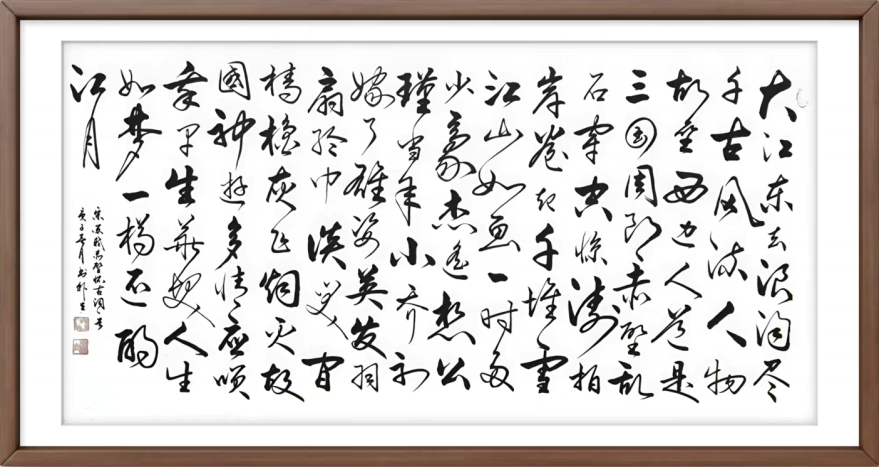 大江东去浪淘尽
千古风流人物
故垒西边人道是
三国周郎赤壁乱
石穿空惊涛拍
岸卷起千堆雪
江山如画一时多
少豪杰遥想公
瑾当年小乔初
嫁了雄姿英发羽
扇纶巾谈笑间
樯橹灰飞烟灭故
國神游多情应咲
我早生华发人生
如梦一樽还酹
江月
宋苏轼赤壁怀古词一首
庚子月书于